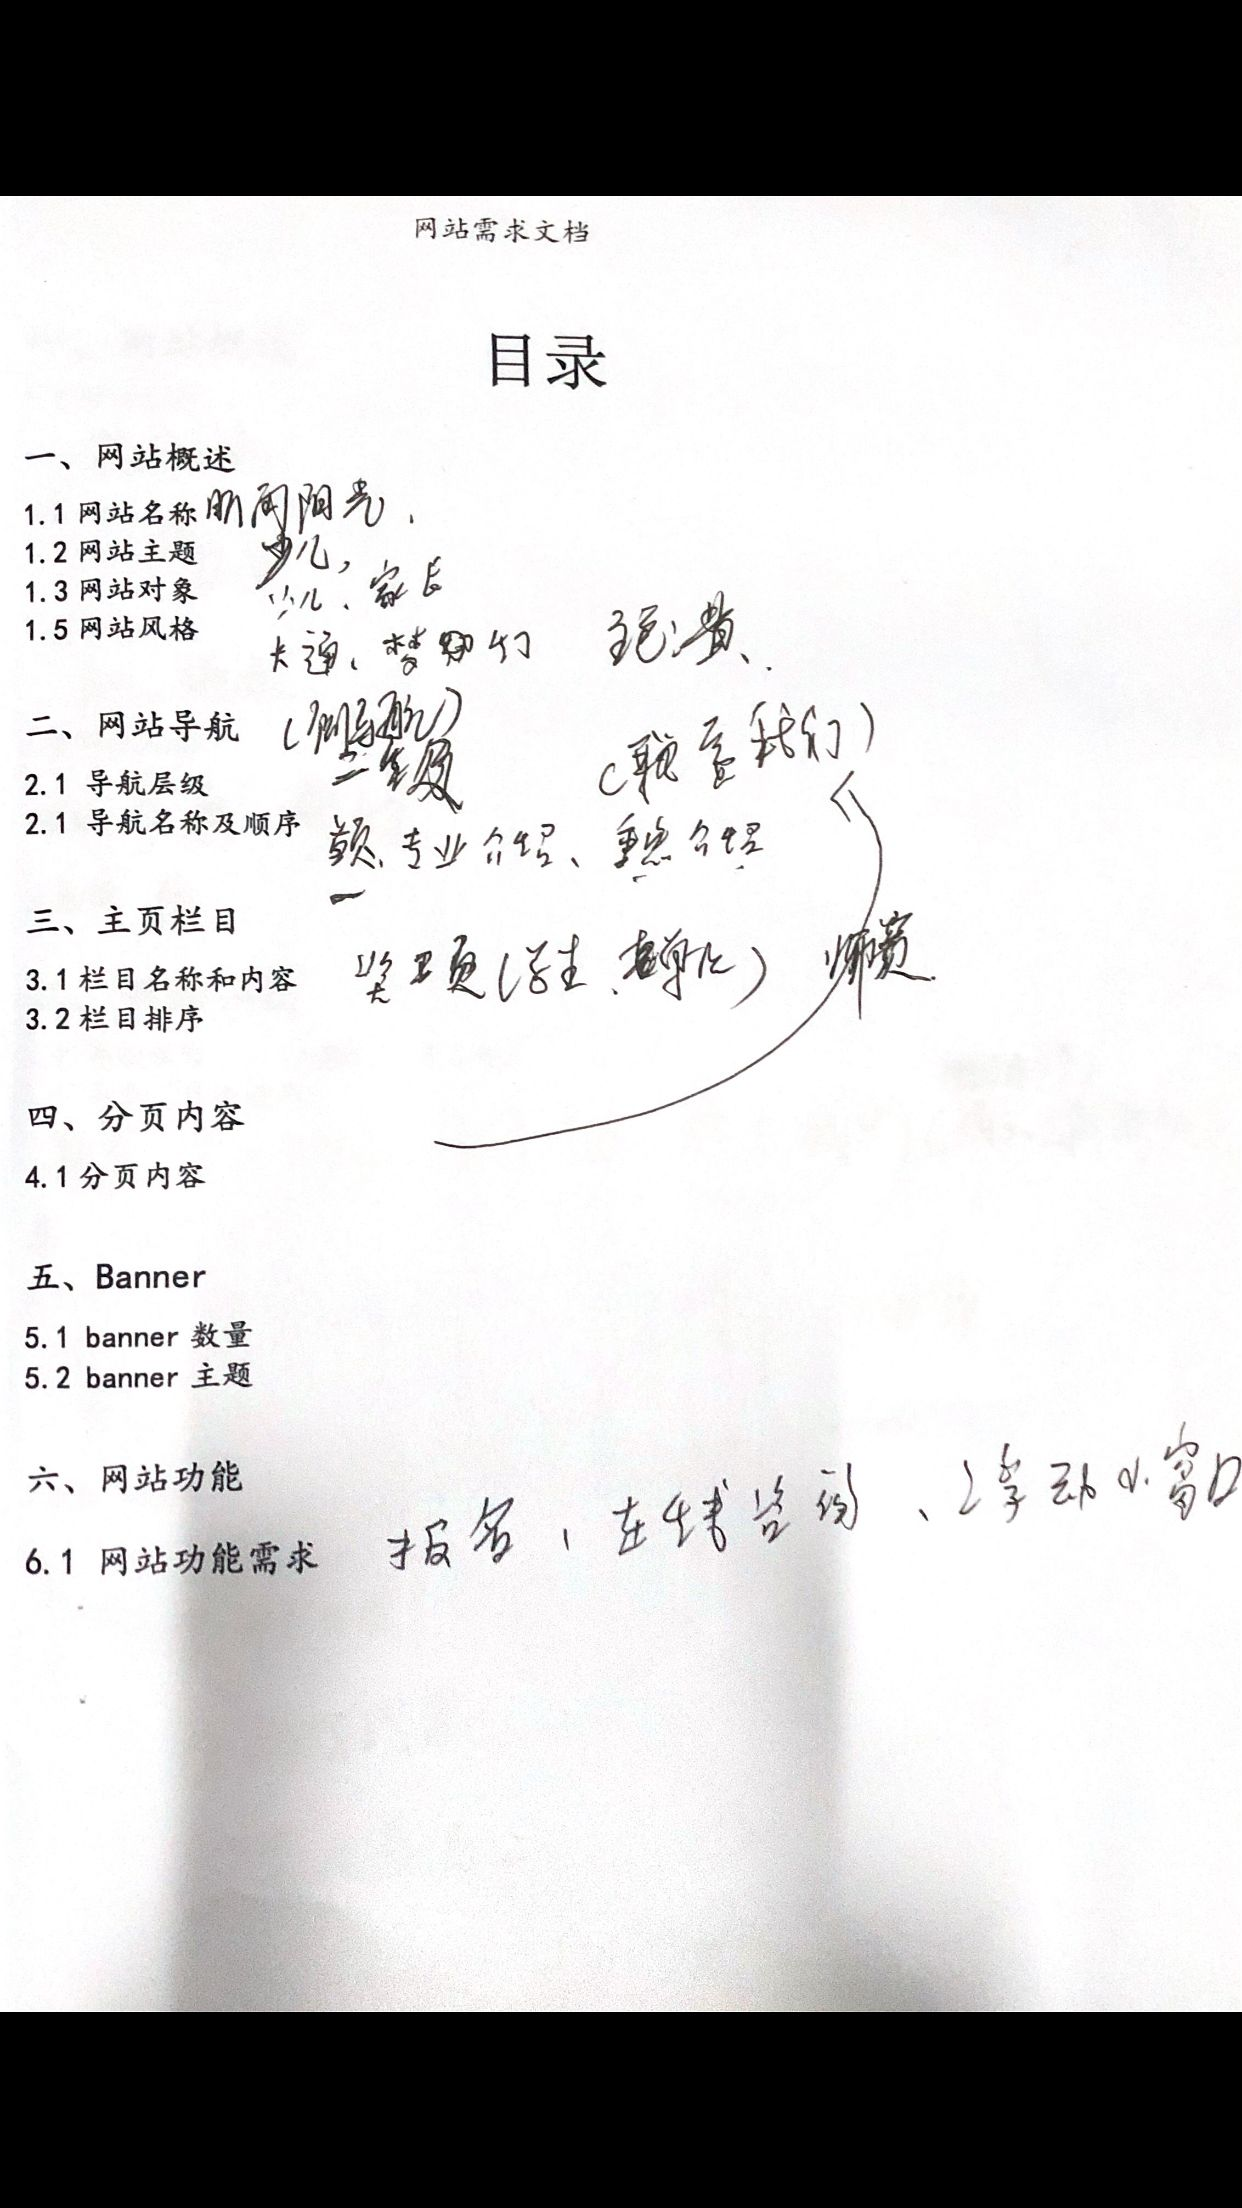 网站需求文档
目录
一、网站概述
1.1 网站名称 阳光,
1.2 网站主题 少儿,
1.3 网站对象 少儿、家长
1.5 网站风格
主色:黄、
二、网站导航 (副导航)
(联盟我们)
2.1 导航层级 二级
2.1 导航名称及顺序 首页、专业介绍、介绍
三、主页栏目
3.1 栏目名称和内容 奖项(学生、) 师资
3.2 栏目排序
四、分页内容
4.1 分页内容
五、Banner
5.1 banner 数量
5.2 banner 主题
六、网站功能
6.1 网站功能需求 报名,在线咨询、浮动小窗口